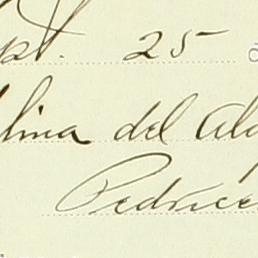 pt. 25
lina del Ala
Pedrice